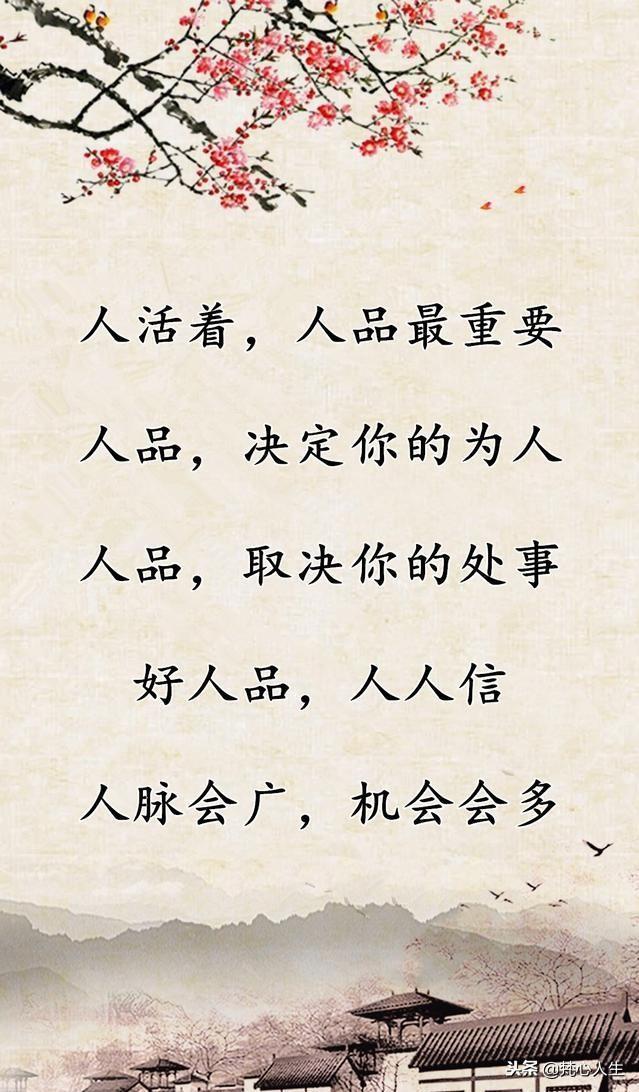 人活着，人品最重要
人品，决定你的为人
人品，取决你的处事
好人品，人人信
人脉会广，机会会多
头条 @梵心人生